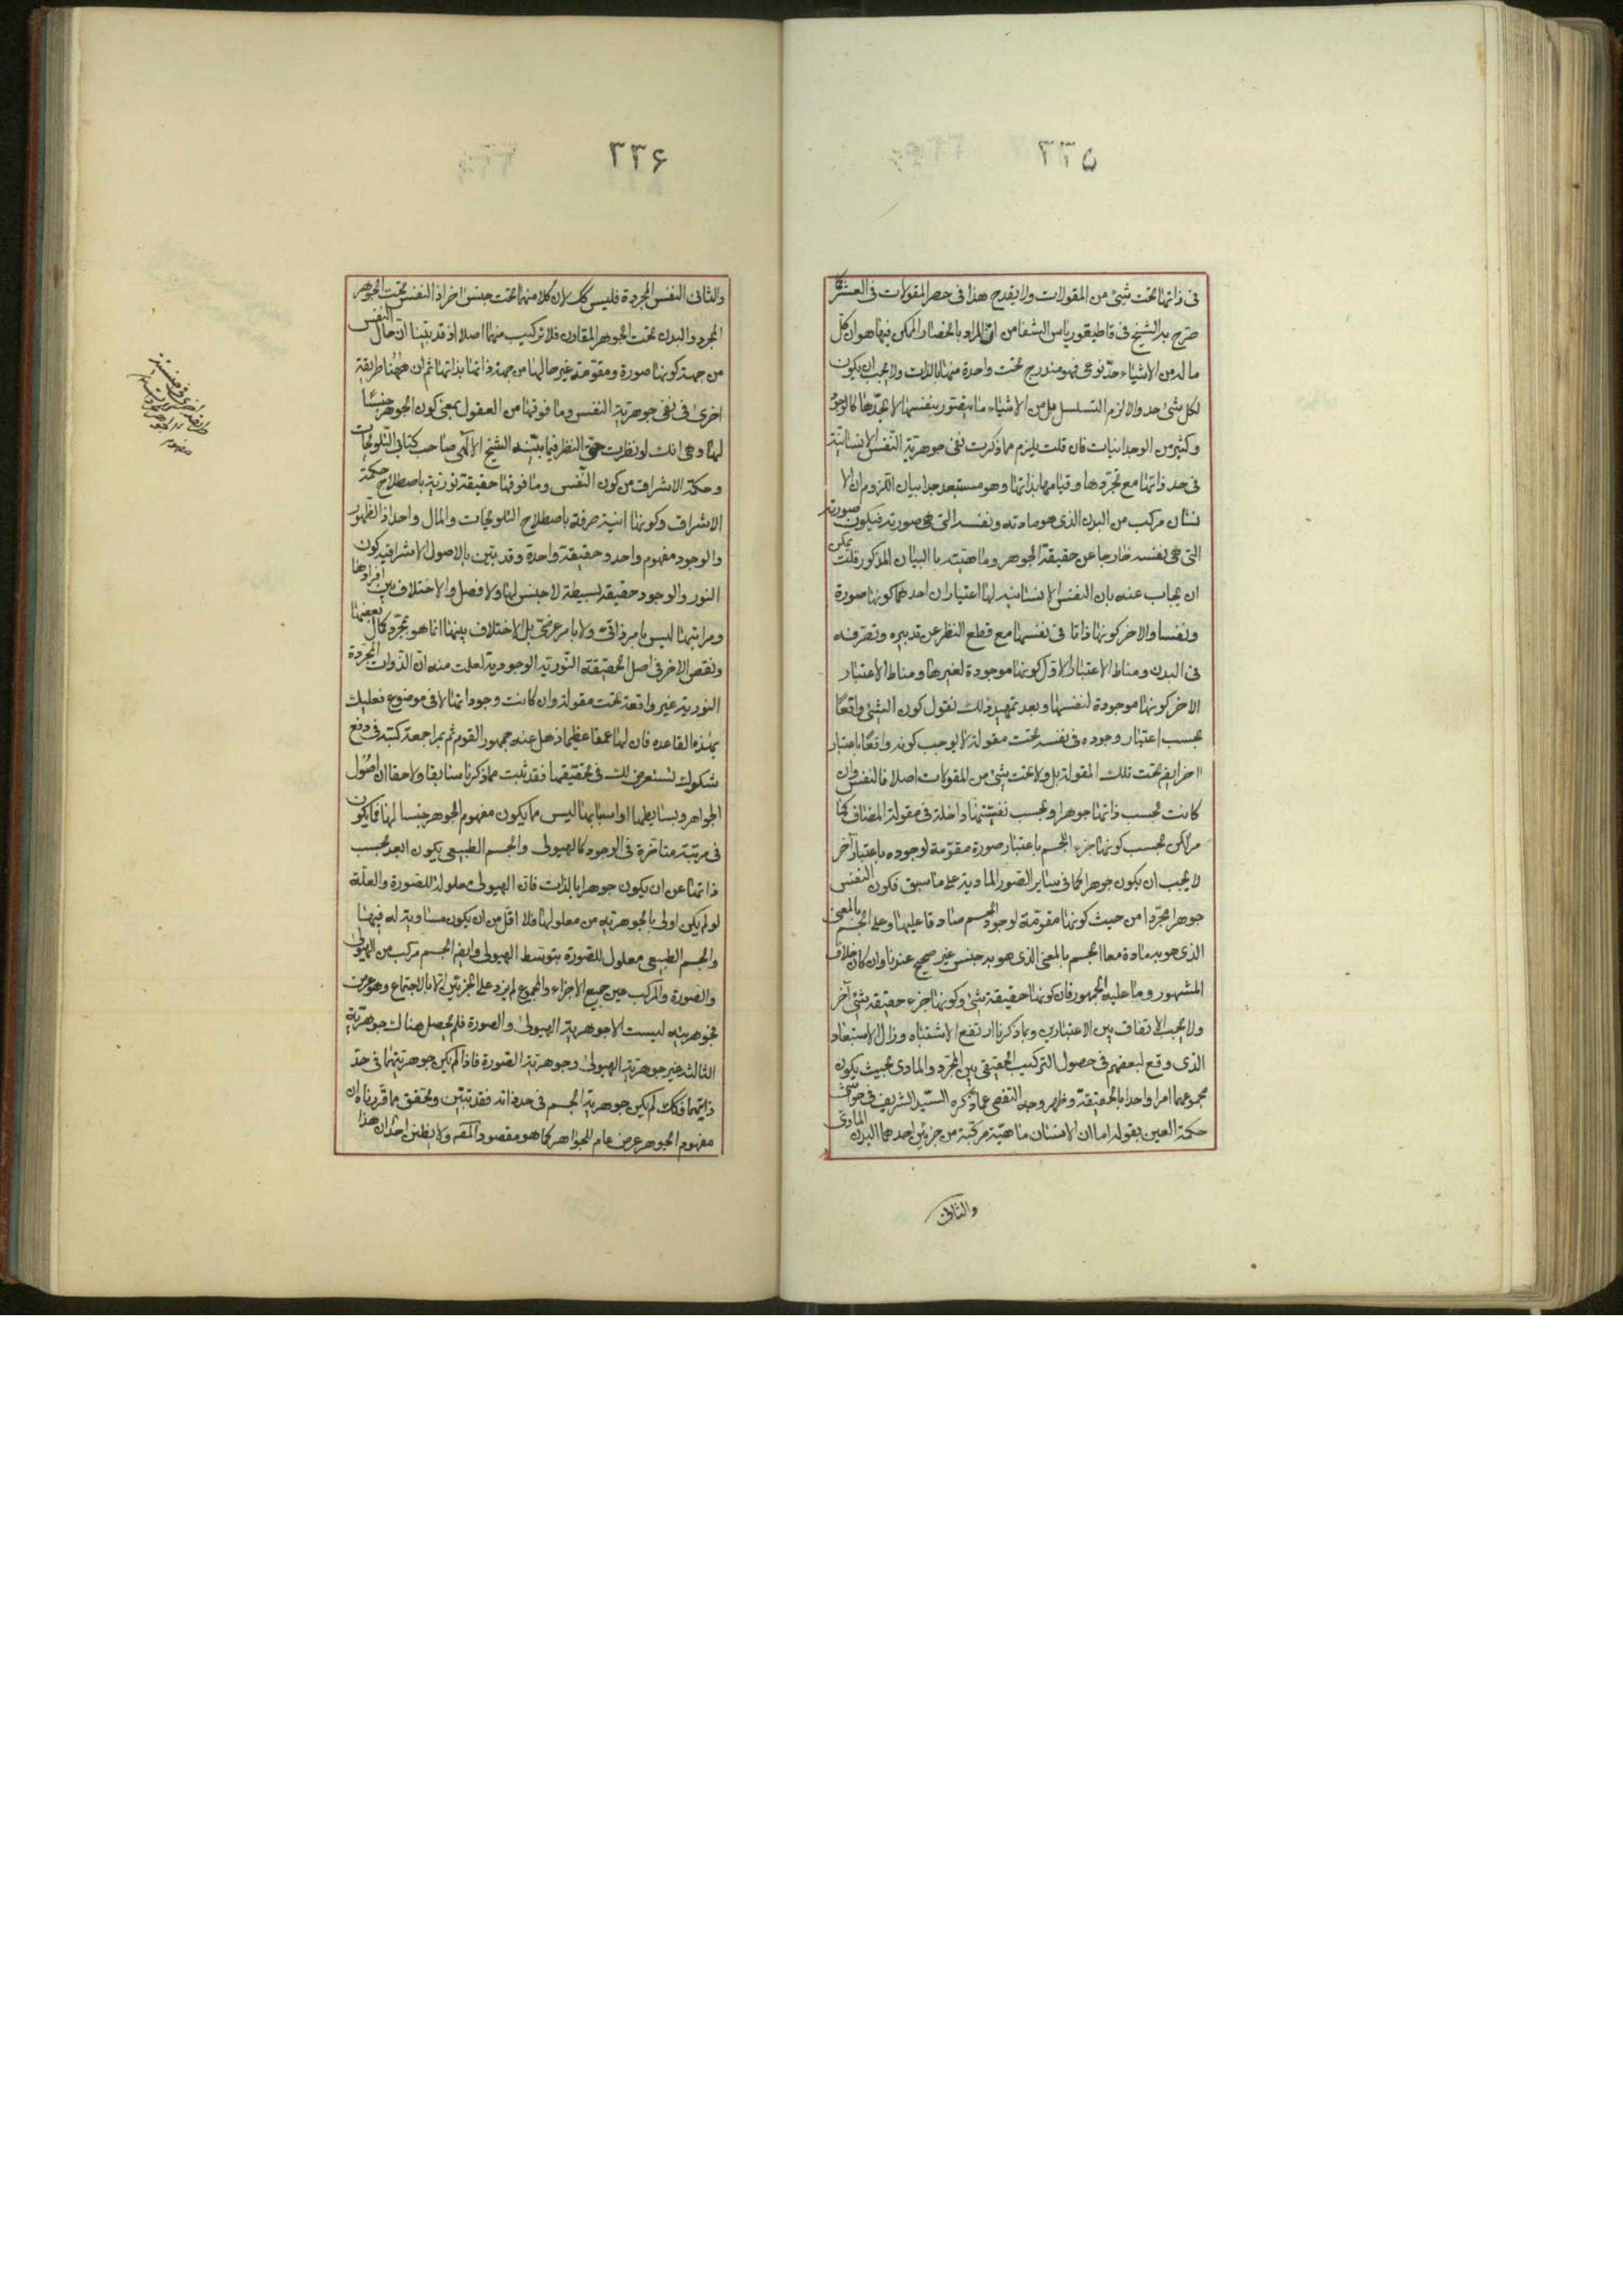 ٣٣۵
فى ذاتها تحت شئ من المقولات ولا يقدح هذا فى حصر المقولات فى العشر كما
صرّح به الشيخ فى قاطيغورياس الشفا من انّ المراد بانحصار الممكن فيها هو ان كلّ
ما له من الاشياء حدّ نوعى فهو مندرج تحت واحدة منها بالذات ولا يجب ان يكون
لكل شئ حد والا لزم التسلسل بل من الاشياء ما يتصور بنفسها لا بحدّها كالوجود
وكثير من الوجدانيات فان قلت يلزم مما ذكرت نفى جوهرية النّفس الانسانيّة
فى حد ذاتها مع تجرّدها وقيامها بذاتها وهو مستبعد جدا بيان اللزوم ان الا
نسان مركب من البدن الذى هو مادته ونفسه التى هى صورته فيكون صورته
التى هى نفسه خارجا عن حقيقة الجوهر وماهيته بالبيان المذكور قلت يمكن
ان يجاب عنه بان النفس الانسانيه لها اعتباران احدهما كونها صورة
ونفسا والاخر كونها ذاتا فى نفسها مع قطع النظر عن تدبيره وتصرّفه
فى البدن ومناط الاعتبار الاوّل كونها موجودة لغيرها ومناط الاعتبار
الاخر كونها موجودة لنفسها وبعد تمهيد ذلك نقول كون الشئ واقعًا
بحسب اعتبار وجوده فى نفسه تحت مقولة لا يوجب كونه واقعًا باعتبار
اخر ايضا تحت تلك المقولة بل ولا تحت شئ من المقولات اصلا فالنفس وان
كانت بحسب ذاتها جوهرا وبحسب نفسيّتها داخلة فى مقولة المضاف كما
مر لكن بحسب كونها جزء للجسم باعتبار صورة مقوّمة لوجوده باعتبار آخر
لا يجب ان يكون جوهرا كما فى ساير الصّور المادية على ما سبق فكون النفس
جوهرا مجرّدا من حيث كونها مقوّمة لوجود الجسم صادقا عليها وعلى الجسم بالمعنى
الذى هو به مادة معا الجسم بالمعنى الذى هو به جنس غير صحيح عندنا وان كان خلاف
المشهور وما عليه الجمهور فان كونها حقيقة شئ وكونها جزء حقيقة شئ آخر
ولا يجب الاتفاق بين الاعتبارين وبما ذكرنا ارتفع الاشتباه وزال الاستبعاد
الذى وقع لبعضهم فى حصول التركيب الحقيقى بين المجرّد والمادى بحيث يكون
مجموعهما امرا واحدا بالحقيقة وظهر وجه التفصى عما ذكره السّيد الشريف فى حواشى
حكمة العين بقوله اما ان الانسان ماهيّة مركّبة من جزئين احدهما البدن المادى
والثانى
٣٣۶
والثانى النفس المجردة فليس كك لان كلا منهما تحت جنس اخر اذ النفس تحت الجوهر
المجرد والبدن تحت الجوهر المقارن فلا تركيب منهما اصلا اذ قد بيّنا انّ حال النفس
من جهة كونها صورة ومقوّمة غير حالها من جهة ذاتها بذاتها ثم ان ههُنا طريقة
اخرى فى نفى جوهريّة النّفس وما فوقها من العقول بمعنى كون الجوهر جنسًا
لها وهى انك لو نظرت حقّ النظر فيما بيّنه الشيخ الالٓهى صاحب كتابى التّلويحات
وحكمة الاشراق من كون النّفس وما فوقها حقيقة نوريّة باصطلاح حكمة
الاشراق وكونها انية صرفة باصطلاح التلويحات والمال واحد اذ الظهور
والوجود مفهوم واحد وحقيقة واحدة وقد بيّن بالاصول الاشراقيه كون
النور والوجود حقيقة بسيطة لا جنس لها ولا فصل والاختلاف بين افرادها
ومراتبها ليس بامر ذاتى ولا بامر عرضى بل الاختلاف بينها انما هو بمجرّد كمال بعضها
ونقص الاخر فى اصل الحقيقة النّورية الوجودية لعلمت منه انّ الذّوات المجرّدة
النورية غير واقعة تحت مقولة وان كانت وجوداتها لا فى موضوع فعليك
بهذه القاعده فان لها عمقا عظيما ذهل عنه جمهور القوم ثم بمراجعة كتبه فى دفع
شكوك تستعرض لك فى تحقيقها فقد ثبت مما ذكرنا سابقا ولاحقا ان اصُول
الجواهر وبسايطها او اسبابها ليس مما يكون مفهوم الجوهر جنسا لها فما يكون
فى مرتبة متاخرة فى الوجود كالهيولى والجسم الطبيعى يكون ابعد بحسب
ذاتها عن ان يكون جوهرا بالذات فان الهيولى معلولة للصّورة والعلّة
لو لم يكن اولى بالجوهريّة من معلولها فلا اقلّ من ان يكون مساوية له فيها
والجسم الطبيعى معلول للصّورة بتوسّط الهيولى وايضا الجسم مركب من الهيولى
والصّورة والمركب عين جميع الاجزاء والمجموع لم يزد على الجزئين الّا بالاجتماع وهو عرض
فجوهريته ليست الا جوهرية الهيولى والصورة فلم يحصل هناك جوهريّة
الثالث غير جوهريّة الهيولى وجوهريّة الصّورة فاذا لم يكن جوهريتهما فى حدّ
ذاتهما فكك لم يكن جوهرية الجسم فى حد ذاته فقد تبيّن وتحقق مما قرّرناه ان
مفهوم الجوهر عرض عام للجواهر كما هو مقصود المصَ ولا يظنن احد ان هذا